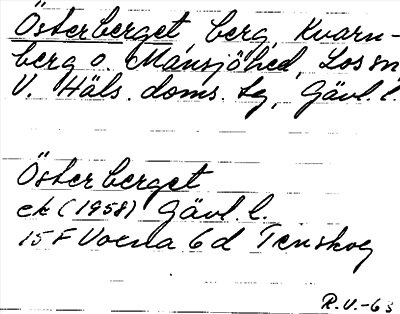 Österberget, berg, Kvarn-
berg o. Månsjöhed, Los sn
V. Häls. doms. tg, Gävl. l.
Österberget
ek (1958) Gävl. l.
15 F Voxna 6 d Tenskog
R.V.-63